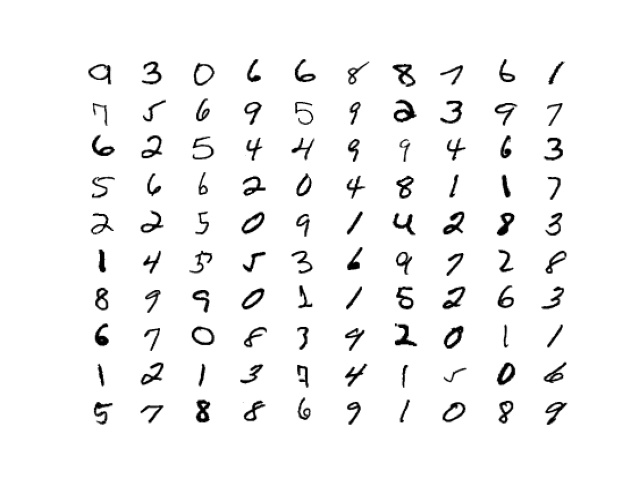 9 3 0 6 6 8 8 7 6 1
7 5 6 9 5 9 2 3 9 7
6 2 5 4 4 9 9 4 6 3
5 6 6 2 0 4 8 1 1 7
2 2 5 0 9 1 4 2 8 3
1 4 5 5 3 6 9 7 2 8
8 9 9 0 1 1 5 2 6 3
6 7 0 8 3 9 2 0 1 1
1 2 1 3 7 4 1 5 0 6
5 7 8 8 6 9 1 0 8 9